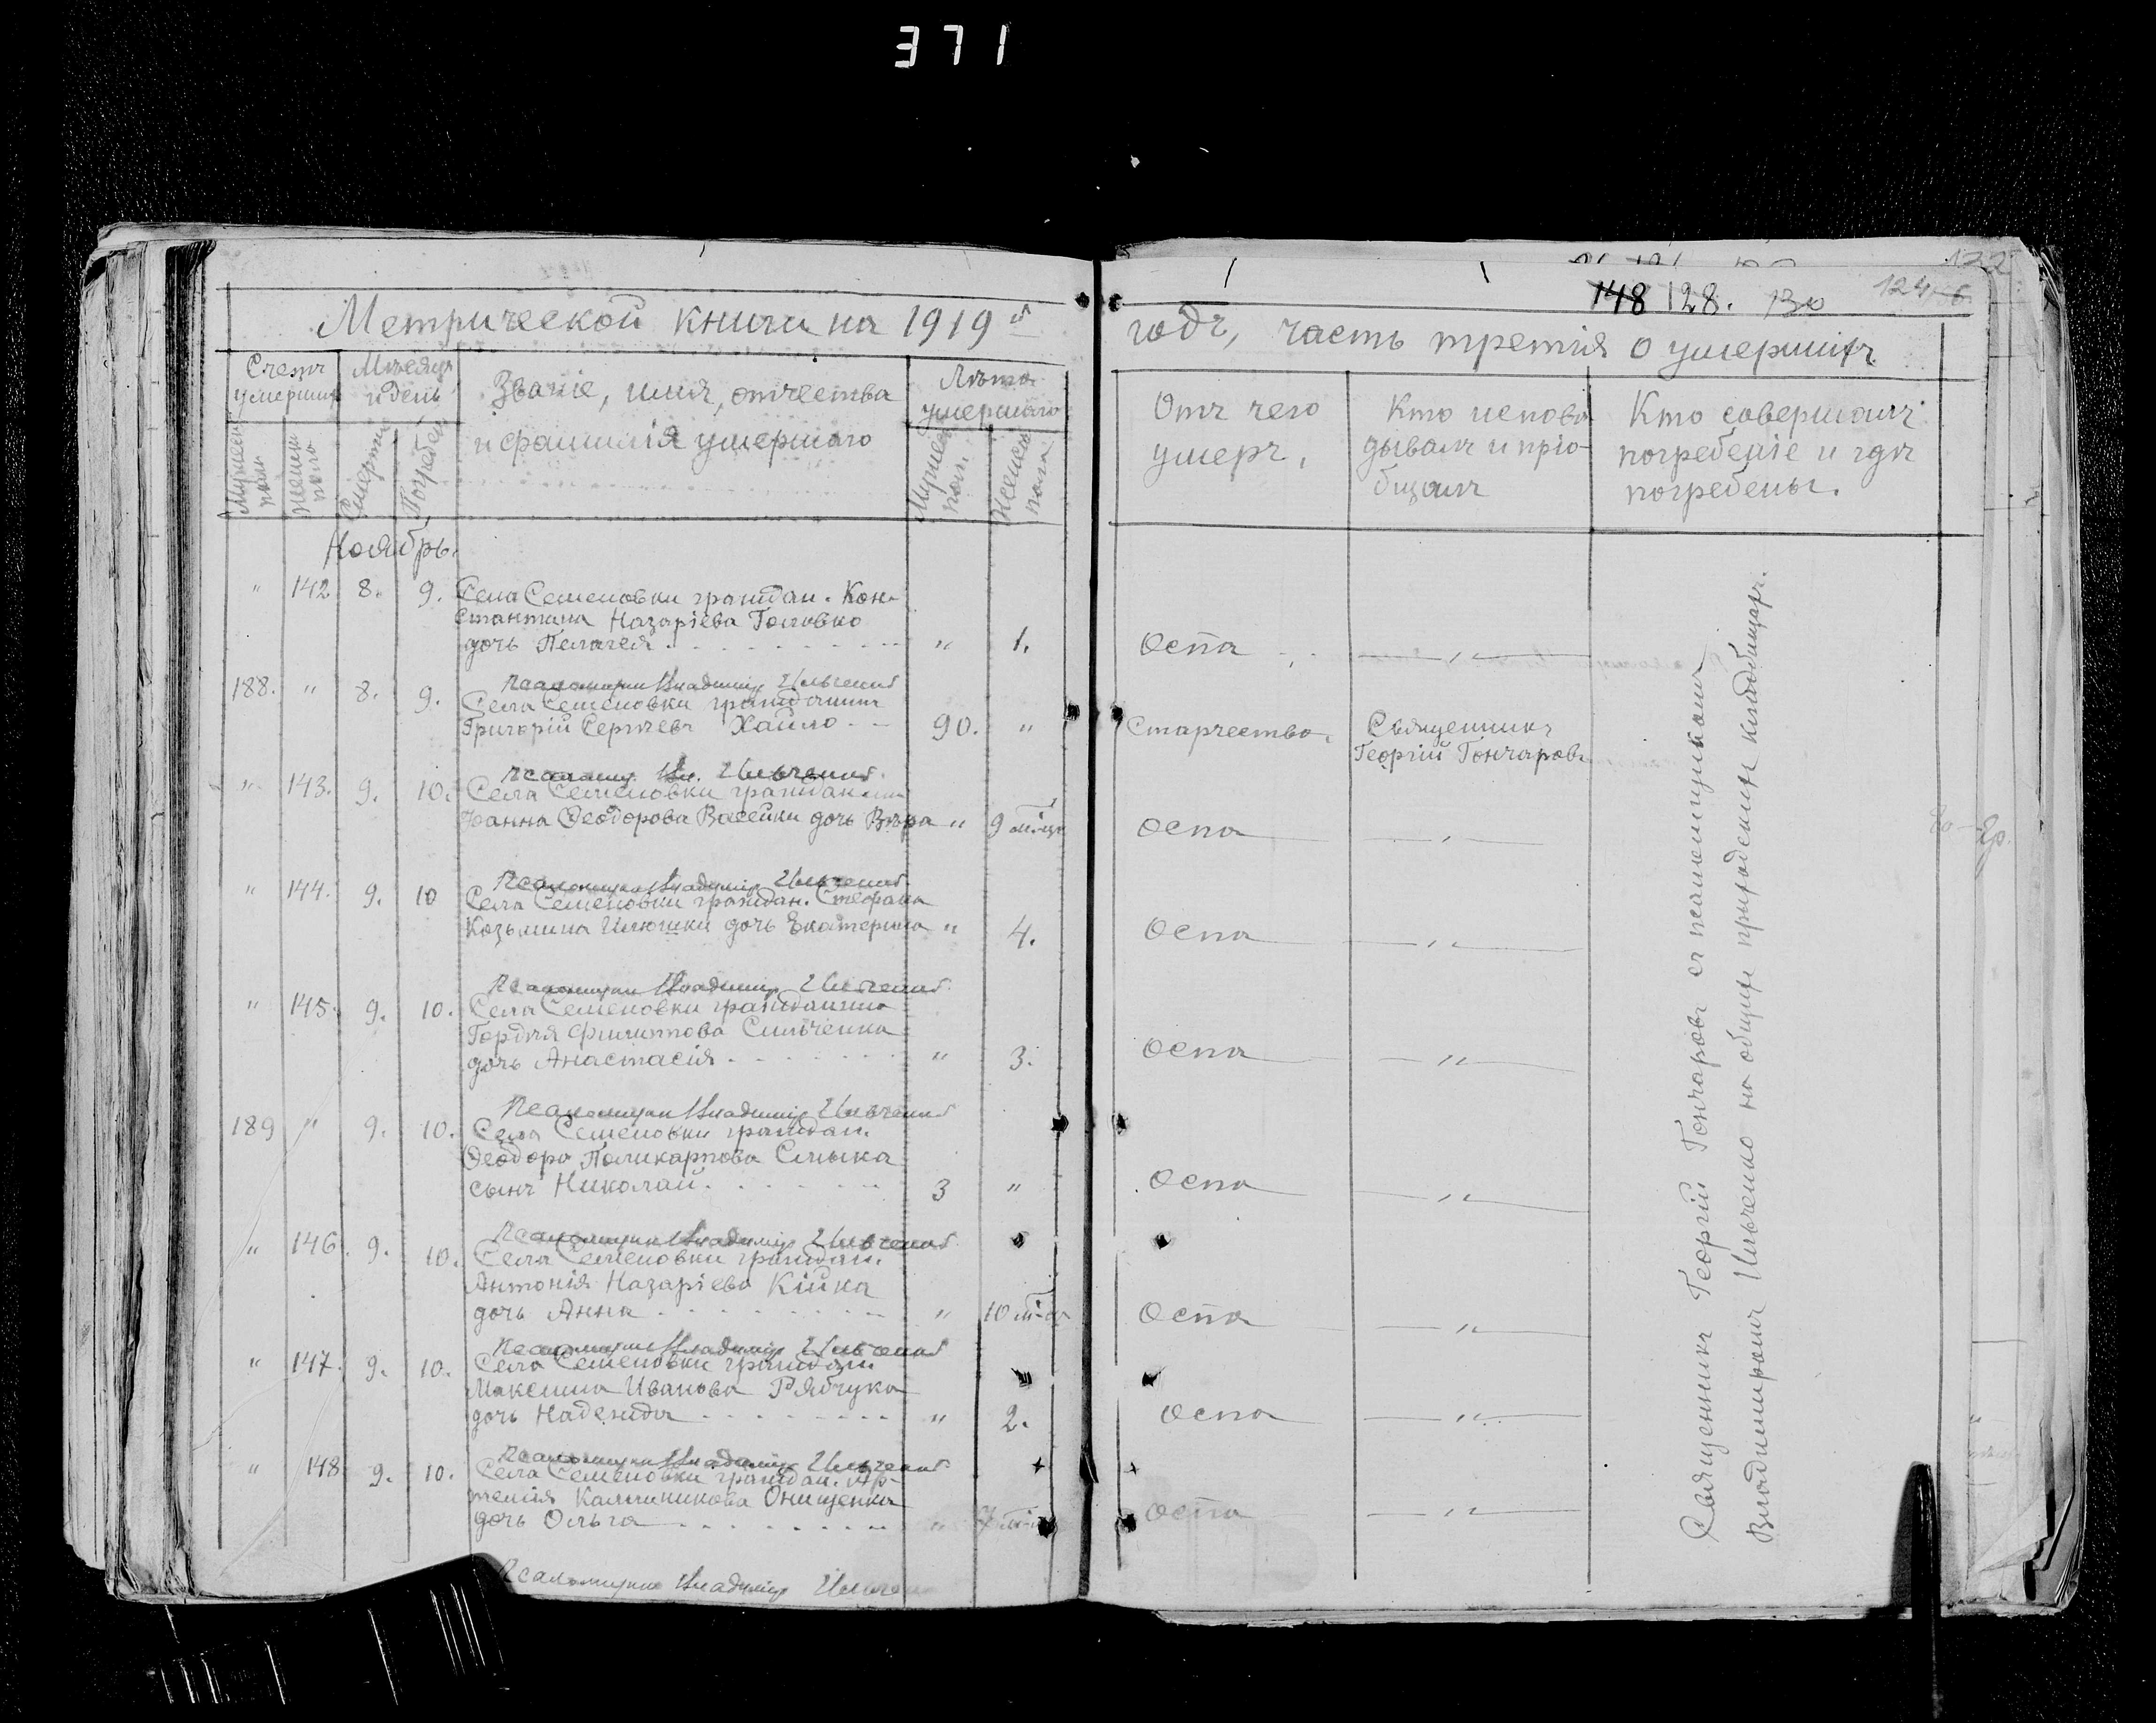 371
148 128. 130
Метрической книги на 1919й
годъ, часть третія о умершихъ
Счетъ умершихъ
Мѣсяцъ и день
Званіе, имя, отчества
и фамилія умершаго
Лѣта умершаго
Мужеска пола
Женска пола
Смерти
Погребен.
Мужеск. пол.
Женска пола
Отъ чего
умеръ,
Кто испове-
дывалъ и прiо-
бщалъ
Кто совершалъ
погребеніе и гдѣ
погребены.
Ноябрь.
" 142 8. 9. Села Семеновки граждан. Кон-
стантина Назаріева Головко
дочь Пелагея " 1. Оспа — " —
Псаломщик Владимір Ильченко
188. " 8. 9. Села Семеновки гражданинъ
Григорій Сергѣевъ Хайло 90. " Старчество, Священникъ
Георгій Гончаровъ
Псаломщ. Вл. Ильченко
" 143. 9. 10. Села Семеновки гражданина
Іоанна Ѳеодорова Васейки дочь Вѣра " 9 м-цъ Оспа — " —
Псаломщик Владимір Ильченко
" 144. 9. 10 Села Семеновки граждан. Стефана
Козьмина Илюшки дочь Екатерина " 4. Оспа — " —
Псаломщик Владимір Ильченко
" 145. 9. 10. Села Семеновки гражданина
Гордѣя Филиппова Сильченка
дочь Анастасія " 3. Оспа — " —
Псаломщик Владимір Ильченко
189 " 9. 10. Села Семеновки граждан.
Ѳеодора Поликарпова Смыка
сынъ Николай. 3 " Оспа — " —
Псаломщик Владимір Ильченко
" 146. 9. 10. Села Семеновки граждан.
Антонія Назаріева Кійка
дочь Анна " 10 м-ц Оспа — " —
Псаломщик Владимір Ильченко
" 147. 9. 10. Села Семеновки граждан.
Максима Иванова Рябчука
дочь Надежда " 2. Оспа — " —
Псаломщик Владимір Ильченко
" 148 9. 10. Села Семеновки граждан. Ар-
темія Калинникова Онищенка
дочь Ольга " 7 м-ц Оспа — " —
Псаломщик Владимір Ильченко
Священникъ Георгій Гончаровъ съ псаломщикомъ
Владиміромъ Ильченко на общемъ приходскомъ кладбищѣ.